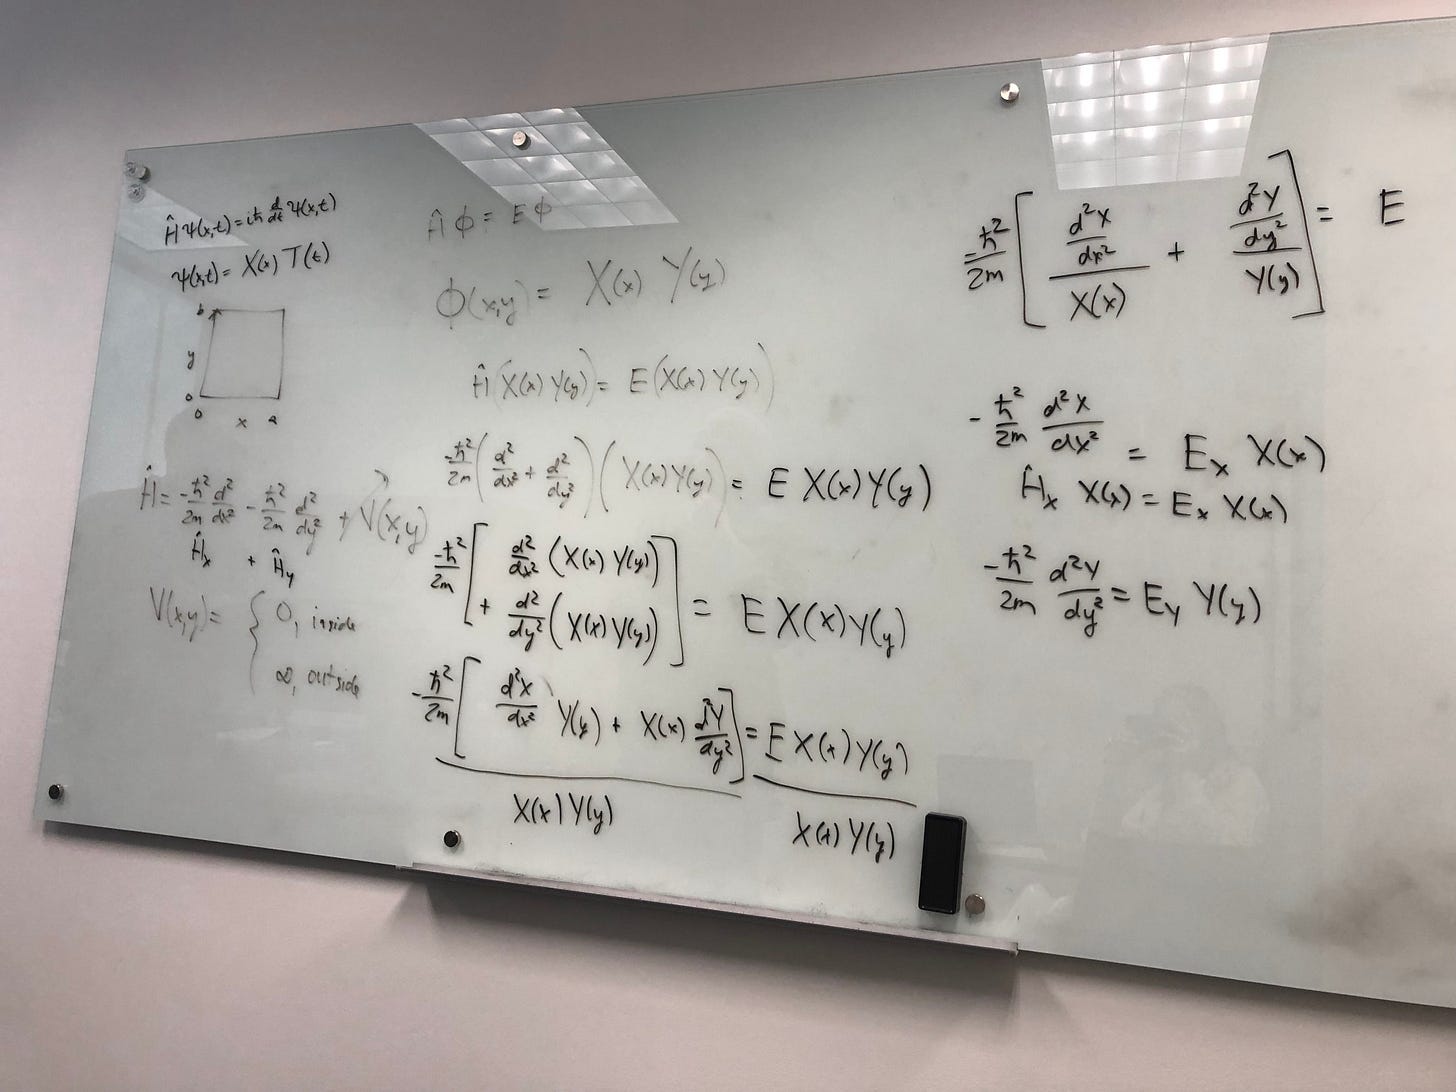 Ĥ Ψ(x,t) = iħ d/dt Ψ(x,t)
Ψ(x,t) = X(x) T(t)
b
y
0
0 x a
Ĥ = -ħ²/2m d²/dx² - ħ²/2m d²/dy² + V(x,y)
Ĥx + Ĥy
V(x,y) = { 0, inside
∞, outside
Ĥ ϕ = E ϕ
ϕ(x,y) = X(x) Y(y)
Ĥ(X(x) Y(y)) = E(X(x) Y(y))
-ħ²/2m (d²/dx² + d²/dy²)(X(x) Y(y)) = E X(x) Y(y)
-ħ²/2m [ d²/dx² (X(x) Y(y))
+ d²/dy² (X(x) Y(y)) ] = E X(x) Y(y)
-ħ²/2m [ d²X/dx² Y(y) + X(x) d²Y/dy² ] = E X(x) Y(y)
X(x) Y(y) X(x) Y(y)
-ħ²/2m [ d²X/dx² / X(x) + d²Y/dy² / Y(y) ] = E
-ħ²/2m d²X/dx² = Ex X(x)
Ĥx X(x) = Ex X(x)
-ħ²/2m d²Y/dy² = Ey Y(y)